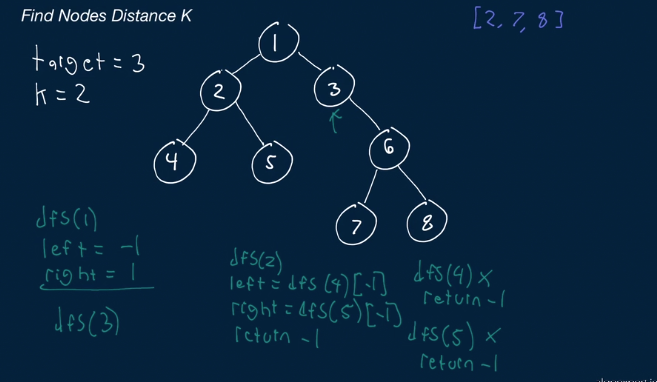 Find Nodes Distance K
[2, 7, 8]
target = 3
k = 2
1
2
3
4
5
6
7
8
dfs(1)
left = -1
right = 1
dfs(3)
dfs(2)
left = dfs(4)[-1]
right = dfs(5)[-1]
return -1
dfs(4) x
return -1
dfs(5) x
return -1